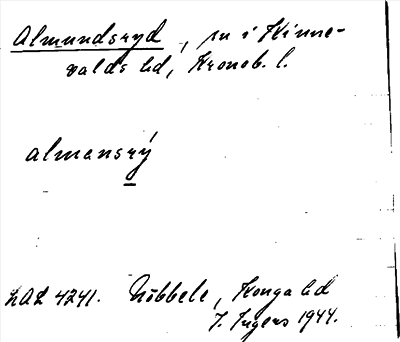 Almundsryd, sn i Kinne-
valds hd, Kronob. l.
almansrý
LAL 4241. Nöbbele, Konga hd
I. Ingers 1944.